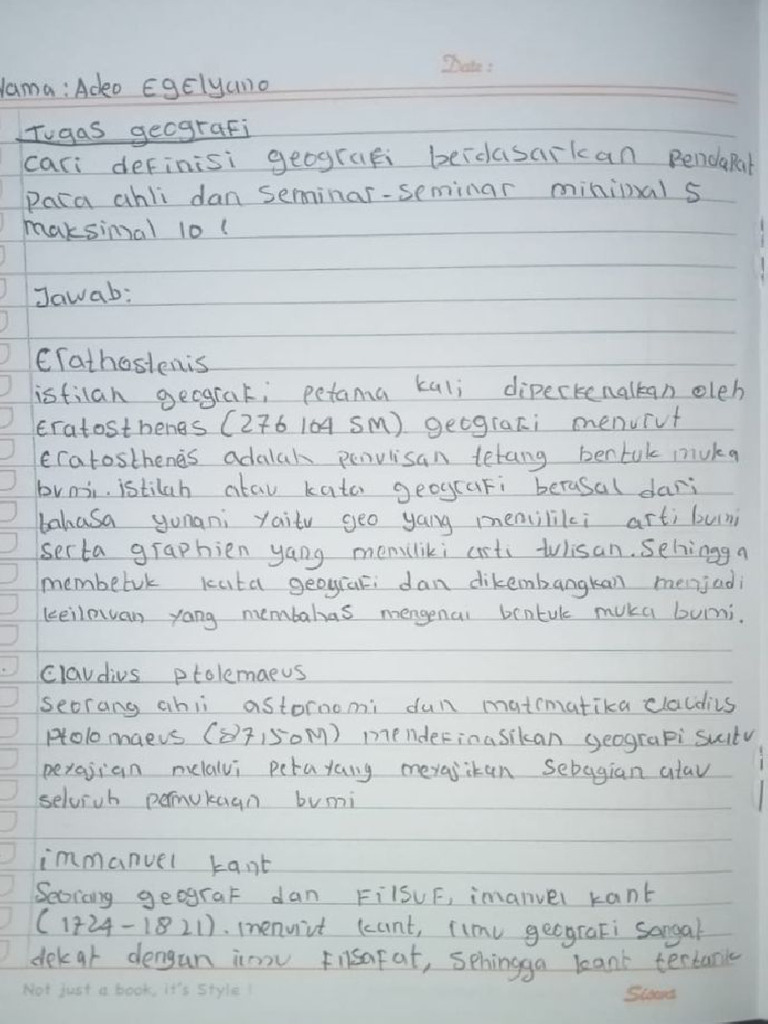 Date:
Nama: Adeo Egelyano
Tugas geografi
Cari definisi geografi berdasarkan Pendapat
para ahli dan Seminar-Seminar minimal 5
maksimal 10 !
Jawab:
Erathostenis
istilah geografi petama kali diperkenalkan oleh
Eratosthenes (276 104 SM) geografi menurut
Eratosthenes adalah penulisan tetang bentuk muka
bumi. istilah atau kata geografi berasal dari
bahasa yunani yaitu geo yang memiliki arti bumi
serta graphien yang memiliki arti tulisan. Sehingga
membetuk kata geografi dan dikembangkan menjadi
keilmuan yang membahas mengenai bentuk muka bumi.
Claudius Ptolemaeus
Seorang ahli astornomi dan matematika Claudius
Ptolomaeus (87,150M) mendefinasikan geografi suatu
peyajian melalui peta yang meyajikan Sebagian atau
seluruh pemukaan bumi
immanuel kant
Seorang geograf dan Filsuf, imanuel kant
(1724-1821). menurut kant, ilmu geografi sangat
dekat dengan ilmu Filsafat, Sehingga kant tertarik
Not just a book, it's Style !